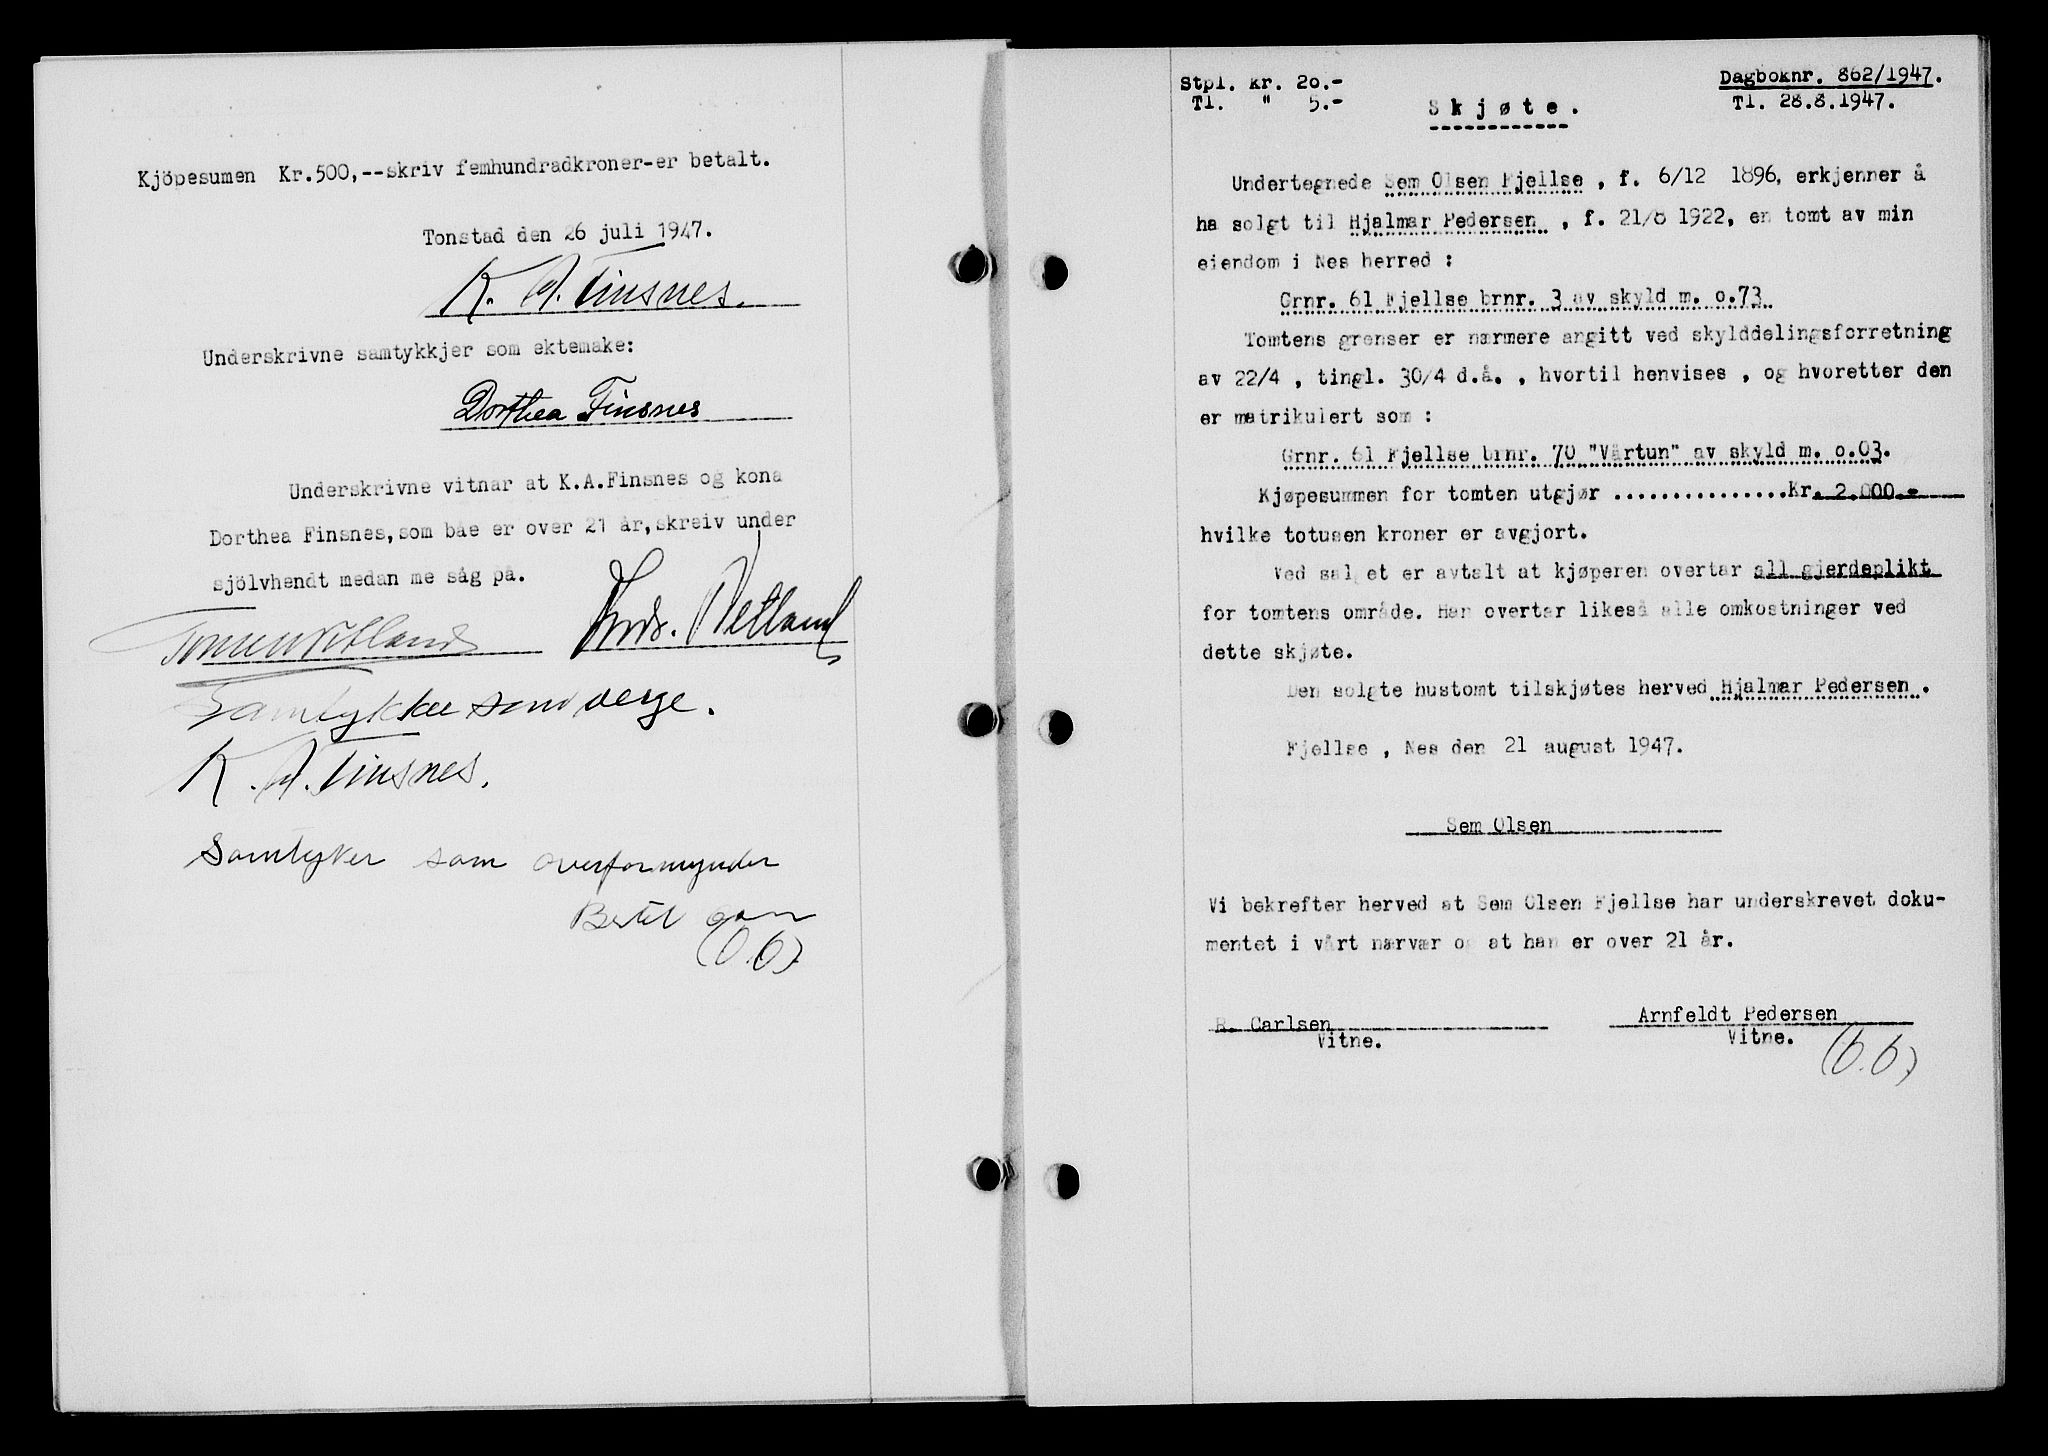 Kjöpesumen Kr.500,--skriv femhundradkroner-er betalt.
Tonstad den 26 juli 1947.
K. A. Finsnes.
Underskrivne samtykkjer som ektemake:
Dorthea Finsnes
Underskrivne vitnar at K.A.Finsnes og kona
Dorthea Finsnes,som båe er over 21 år,skreiv under
sjölvhendt medan me såg på.
Samtykker som verge.
K. A. Finsnes.
Samtyker som overformynder
Bertel
Stpl. kr. 20.-
Tl. " 5.-
Dagboknr. 862/1947.
Tl. 28.8.1947.
Skjøte.
Undertegnede Sem Olsen Fjellse , f. 6/12 1896, erkjenner å
ha solgt til Hjalmar Pedersen , f. 21/8 1922, en tomt av min
eiendom i Nes herred :
Grnr. 61 Fjellse brnr. 3 av skyld m. o.73
Tomtens grenser er nærmere angitt ved skylddelingsforretning
av 22/4 , tingl. 30/4 d.å. , hvortil henvises , og hvoretter den
er matrikulert som :
Grnr. 61 Fjellse brnr. 70 "Vårtun" av skyld m. o.03.
Kjøpesummen for tomten utgjør ................Kr. 2.000.-
hvilke totusen kroner er avgjort.
Ved salget er avtalt at kjøperen overtar all gjerdeplikt
for tomtens område. Han overtar likeså alle omkostninger ved
dette skjøte.
Den solgte hustomt tilskjøtes herved Hjalmar Pedersen .
Fjellse , Nes den 21 august 1947.
Sem Olsen
Vi bekrefter herved at Sem Olsen Fjellse har underskrevet doku-
mentet i vårt nærvær og at han er over 21 år.
R. Carlsen
Vitne.
Arnfeldt Pedersen
Vitne.